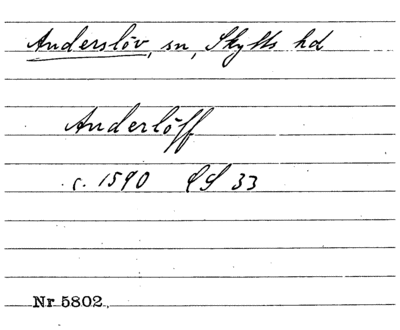 Anderslöv, sn, Skytts hd
Anderlöff
c. 1590 LS 33
Nr 5802.